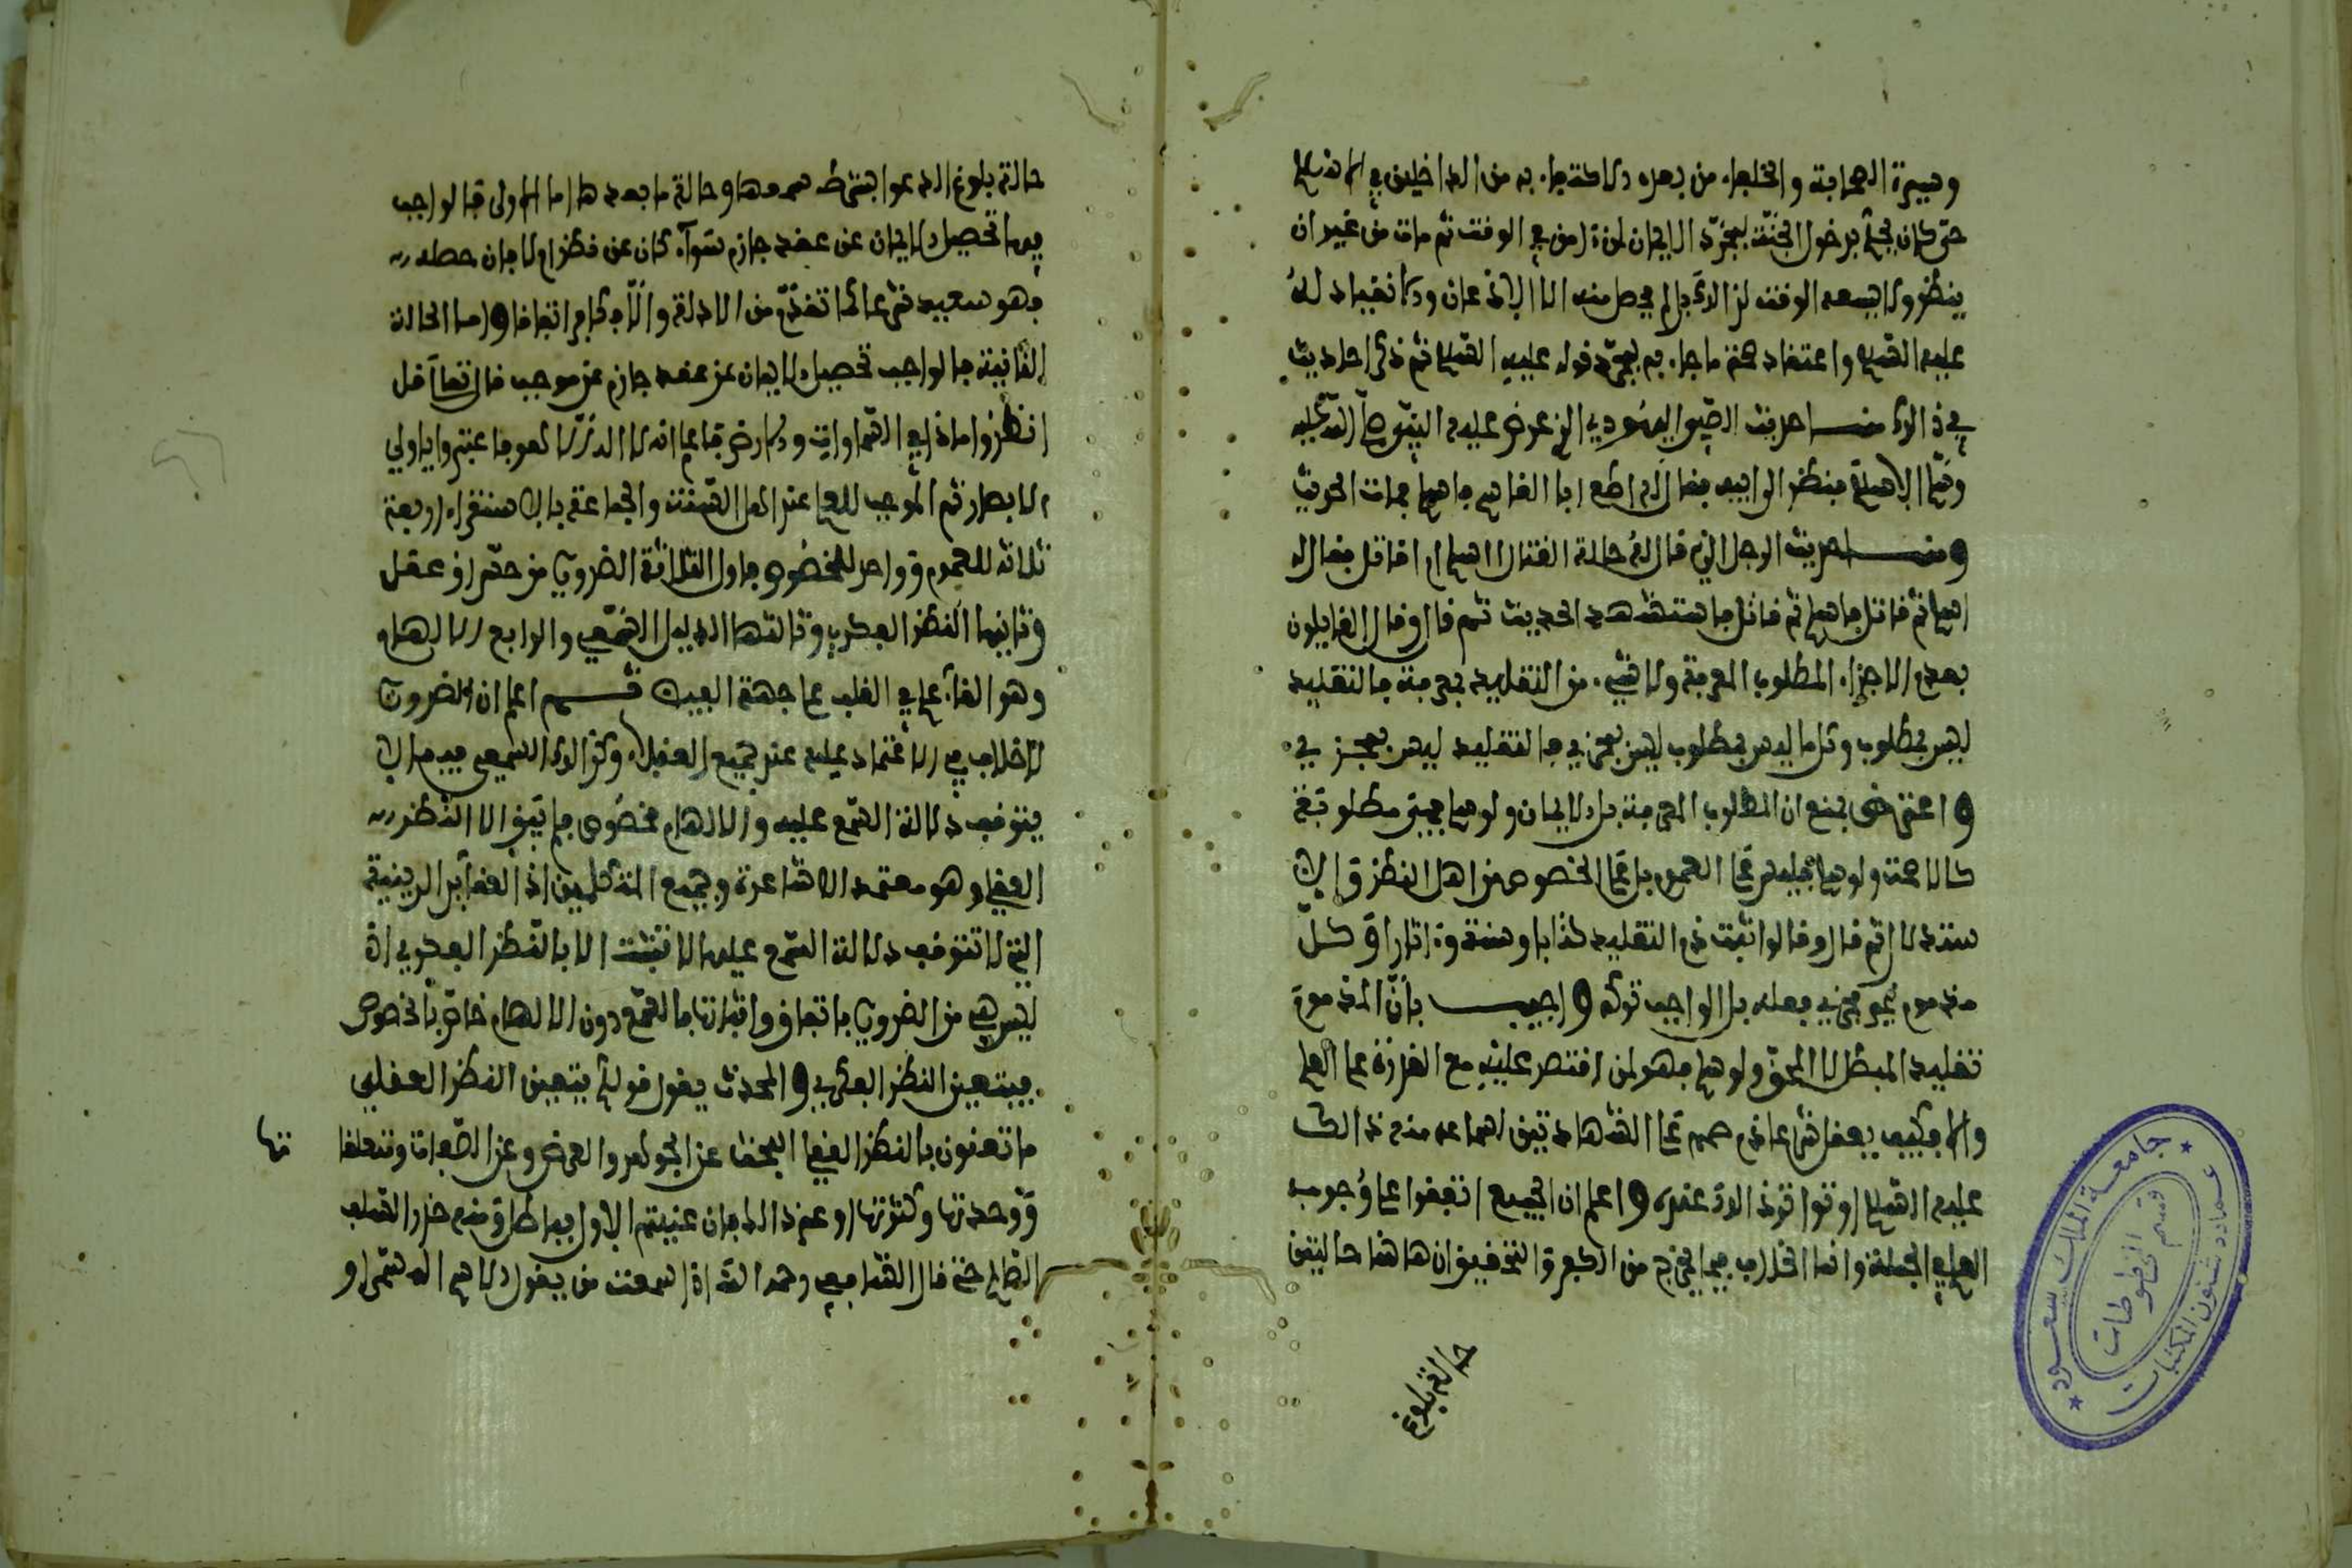 وسيرة الصحابة والخلفاء من بعده والاكتفاء به من الداخلين في الاسلام
حتى كان يحكم بدخول الجنة بمجرد الايمان لمن ءامن في الوقت ثم مات من غير ان
ينظر ولا يسعه الوقت لذالك بل لم يحصل منه الا الاذعان والانقياد له
عليه السلام واعتقاد صحة ما جاء به بمجرد قوله عليه السلام ثم ذكر احاديث
في ذالك منها حديث الصبي اليهودي الذي عرض عليه النبي صلى الله عليه
وسلم الاسلام فنظر لابيه فقال له اطع ابا القاسم فاسلم فمات الحديث
ومنها حديث الرجل الذي قال له حالة القتال اسلم ام اقاتل فقال له
اسلم ثم قاتل فاسلم ثم قاتل فاستشهد الحديث ثم قال وقال القايلون
بعدم الاجزاء المطلوب المعرفة ولا شيء من التقليد بمعرفة فالتقليد
ليس بمطلوب وكل ما ليس بمطلوب ليس بمجزي فالتقليد ليس بمجزي
واعترض بمنع ان المطلوب المعرفة بل الايمان ولو سلم فهي مطلوبة
كالاصحة ولو سلم فليس على العموم بل على الخصوص من اهل النظر والا
ستدلال ثم قال وقالوا ثبت ذم التقليد كتابا وسنة وءاثارا وكل
مذموم غير مجزي فعله بل الواجب تركه واجيب بان المذموم
تقليد المبطل لا المحق ولو سلم فهو لمن اقتصر عليه مع القدرة على العلم
والا فكيف يعقل شرعا ذم صمم على الشهادتين لسماعه منه ذالك
عليه السلام وتواتر ذالك عنده واعلم ان الجميع اتفقوا على وجوب
العلم في الجملة وانما الخلاف فيما يخرج من الكفر والتحقيق ان هاهنا حالتين
حالة بلوغ
حالة بلوغ الدعوا بشرطه وحالة ما بعدها اما الاولى فالواجب
فيها تحصيل الايمان عن عقد جازم سوآء كان عن نظر ام لا فان حصله
فهو سعيد شرعا لما تقدم من الادلة والاحكام اتفاقا واما الحالة
الثانية فالواجب تحصيل الايمان عن عقد جازم عن موجب قال تعالى قل
انظروا ماذا في السماوات والارض فاعلم انه لا الاه الا الله فاعتبروا يا اولي
الابصار ثم الموجب للعلم عند اهل السنة والجماعة بالاستقراء اربعة
ثلاثة للعموم وواحد للخصوص فاول الثلاثة الضروري من حس او عقل
وثانيها النظر الفكري وثالثها الدليل السمعي والرابع الالهام
وهو القاء علم في القلب على جهة الفيض ثم اعلم ان الضروري
لا خلاف في الاعتماد عليه عند جميع العقلاء وكذالك السمعي فيما لا
يتوقف دلالة السمع عليه والالهام مخصوص فلم يبق الا النظر
العقلي وهو معتمد الاشاعرة وجميع المتكلمين اذ العقايد الدينية
التي لا تتوقف دلالة السمع عليها لا تثبت الا بالنظر الفكري اذ
ليس هي من الضروري باتفاق واثباتها بالسمع دون الالهام خاص بالخصوص
فيتعين النظر الفكري والمحدث يقول قولكم يتعين النظر العقلي
ما تعنون بالنظر العقلي البحث عن الجواهر والعرض وعن الصفات وتعلقا تها
ووحدتها وكثرتها او غير ذالك فان عنيتم الاول فباطل وقد حذر السلف
الصالح حتى قال الشافعي رحمه الله اذا سمعت من يقول الاسم المسمى او
جامعة الملك سعود
عمادة شئون المكتبات
قسم المخطوطات